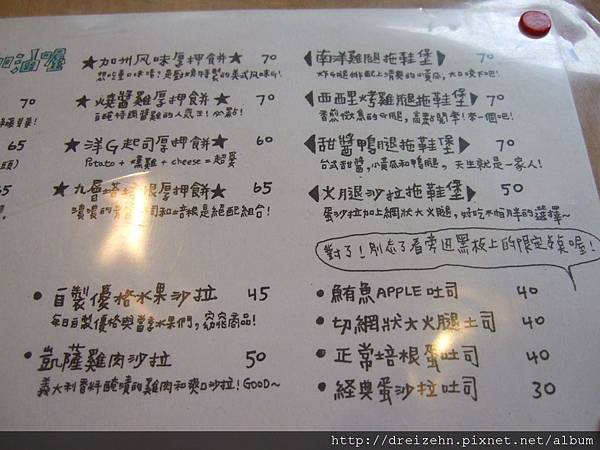 加油喔
70
70
65
65
★加州風味厚押餅★ 70
★燒醬雞厚押餅★ 70
★洋G起司厚押餅★ 65
Potato + 燻雞 + cheese = 超愛
★九層塔培根厚押餅★ 65
濃濃的青醬和培根是絕配組合!
南洋雞腿拖鞋堡 70
西西里烤雞腿拖鞋堡 70
甜醬鴨腿拖鞋堡 70
台式甜醬,小黃瓜和鴨腿,天生就是一家人!
火腿沙拉拖鞋堡 50
蛋沙拉加上網狀大火腿,好吃不怕胖的選擇~
對了!別忘了看旁边黑板上的限定桌喔!
• 自製優格水果沙拉 45
每日自製優格與當季水果們,窈窕商品!
• 凱薩雞肉沙拉 50
義大利香料醃漬的雞肉和爽口沙拉!GOOD~
• 鮪魚APPLE吐司 40
• 切網狀大火腿土司 40
• 正常培根蛋吐司 40
• 經典蛋沙拉吐司 30
http://dreizehn.pixnet.net/album